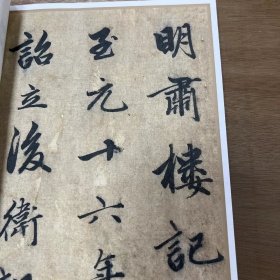 明肅樓記
至元十六年
詔立後衛